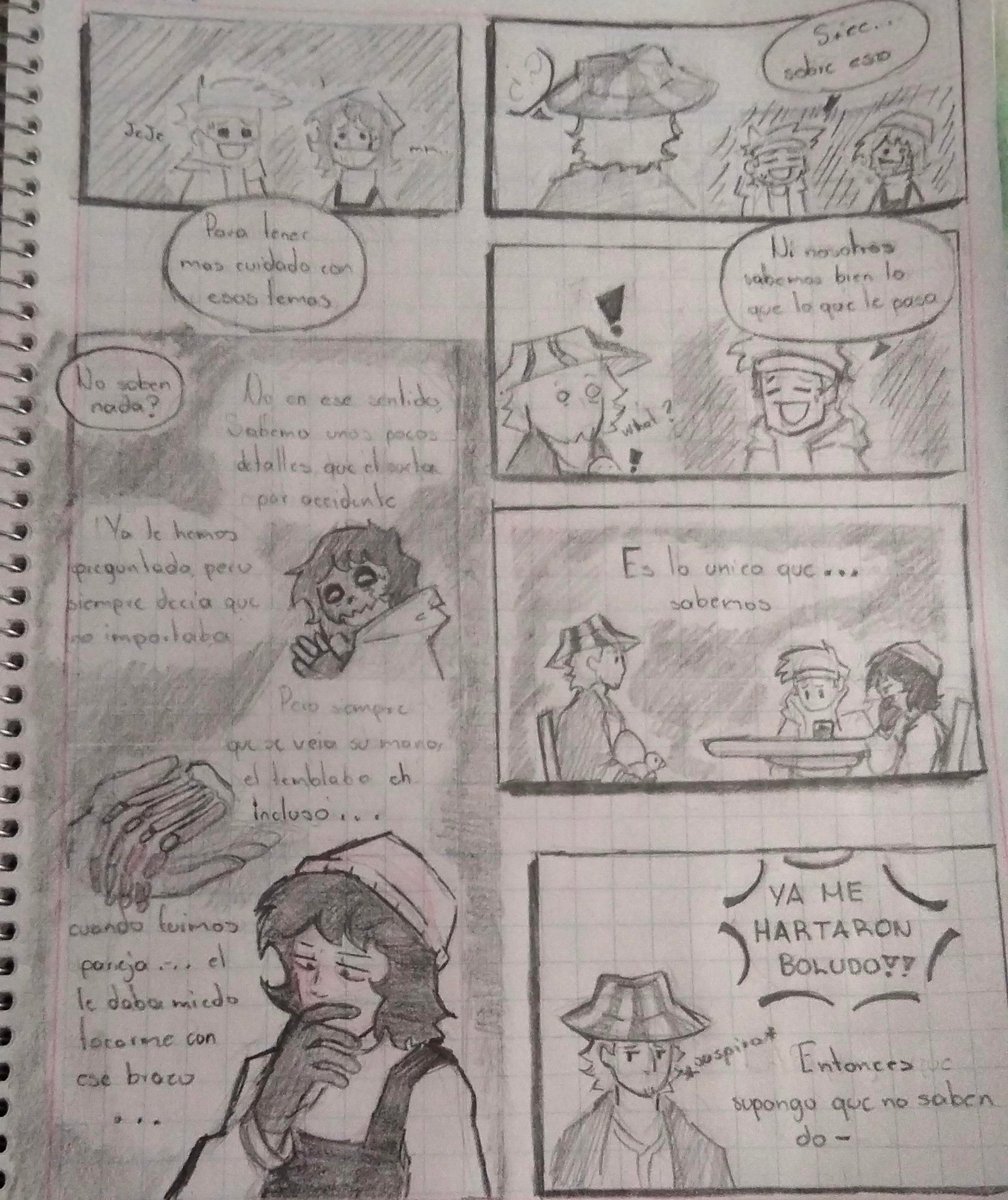 JeJe
mm...
Para tener
mas cuidado con
esos temas
:)
Siee...
sobre eso
Ni nosotros
sabemos bien lo
que lo que le pasa
what?
No saben
nada?
No en ese sentido,
Sabemo unos pocos
detalles que el suelta
por accidente
Ya le hemos
preguntado, pero
siempre decía que
no importaba
Pero siempre
que se veia su mano,
el temblaba eh
incluso....
cuando fuimos
pareja.... el
le daba miedo
tocarme con
ese brazo
...
Es lo unico que...
sabemos
YA ME
HARTARON
BOLUDO!!
*suspira*
Entonces
supongo que no saben
do-